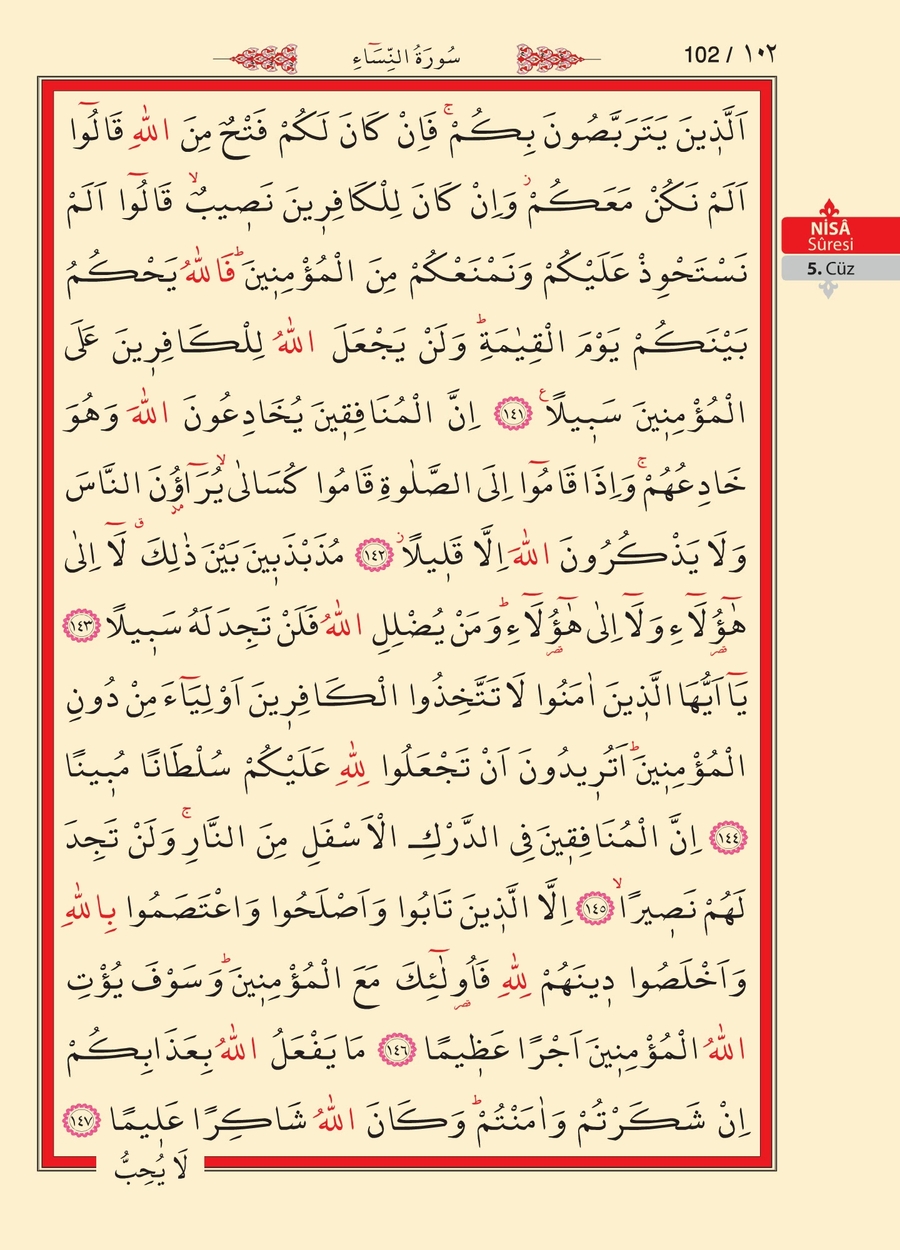 102 / ١٠٢
سُورَةُ النِّسَٓاءِ
اَلَّذ۪ينَ يَتَرَبَّصُونَ بِكُمْۚ فَاِنْ كَانَ لَكُمْ فَتْحٌ مِنَ اللّٰهِ قَالُٓوا
اَلَمْ نَكُنْ مَعَكُمْۘ وَاِنْ كَانَ لِلْكَافِر۪ينَ نَص۪يبٌۙ قَالُٓوا اَلَمْ
نَسْتَحْوِذْ عَلَيْكُمْ وَنَمْنَعْكُمْ مِنَ الْمُؤْمِن۪ينَۜ فَاللّٰهُ يَحْكُمُ
بَيْنَكُمْ يَوْمَ الْقِيٰمَةِۜ وَلَنْ يَجْعَلَ اللّٰهُ لِلْكَافِر۪ينَ عَلَى
الْمُؤْمِن۪ينَ سَب۪يلًا۟ ﴿١٤١﴾ اِنَّ الْمُنَافِق۪ينَ يُخَادِعُونَ اللّٰهَ وَهُوَ
خَادِعُهُمْۚ وَاِذَا قَامُٓوا اِلَى الصَّلٰوةِ قَامُوا كُسَالٰىۙ يُرَٓاؤُ۫نَ النَّاسَ
وَلَا يَذْكُرُونَ اللّٰهَ اِلَّا قَل۪يلًاۘ ﴿١٤٢﴾ مُذَبْذَب۪ينَ بَيْنَ ذٰلِكَۗ لَٓا اِلٰى
هٰٓؤُ۬لَٓاءِ وَلَٓا اِلٰى هٰٓؤُ۬لَٓاءِۜ وَمَنْ يُضْلِلِ اللّٰهُ فَلَنْ تَجِدَ لَهُ سَب۪يلًا ﴿١٤٣﴾
يَٓا اَيُّهَا الَّذ۪ينَ اٰمَنُوا لَا تَتَّخِذُوا الْكَافِر۪ينَ اَوْلِيَٓاءَ مِنْ دُونِ
الْمُؤْمِن۪ينَۜ اَتُر۪يدُونَ اَنْ تَجْعَلُوا لِلّٰهِ عَلَيْكُمْ سُلْطَانًا مُب۪ينًا
﴿١٤٤﴾ اِنَّ الْمُنَافِق۪ينَ فِي الدَّرْكِ الْاَسْفَلِ مِنَ النَّارِۚ وَلَنْ تَجِدَ
لَهُمْ نَص۪يرًاۙ ﴿١٤٥﴾ اِلَّا الَّذ۪ينَ تَابُوا وَاَصْلَحُوا وَاعْتَصَمُوا بِاللّٰهِ
وَاَخْلَصُوا د۪ينَهُمْ لِلّٰهِ فَاُو۬لٰٓئِكَ مَعَ الْمُؤْمِن۪ينَۜ وَسَوْفَ يُؤْتِ
اللّٰهُ الْمُؤْمِن۪ينَ اَجْرًا عَظ۪يمًا ﴿١٤٦﴾ مَا يَفْعَلُ اللّٰهُ بِعَذَابِكُمْ
اِنْ شَكَرْتُمْ وَاٰمَنْتُمْۜ وَكَانَ اللّٰهُ شَاكِرًا عَل۪يمًا ﴿١٤٧﴾
لَا يُحِبُّ
NİSÂ
Sûresi
5. Cüz